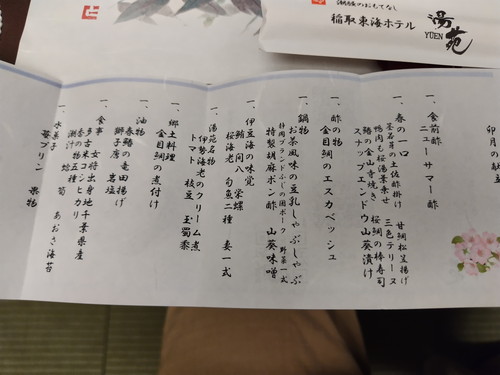 潮騒のおもてなし
稲取東海ホテル 湯苑
YUEN
卯月の献立
一、食前酢
ニューサマー酢
一、春の一口
土佐酢掛け 甘鯛松笠揚げ
鴨肉も桜湯葉乗せ 三色テリーヌ
鰆の金山寺焼き 桜鯛の棒寿司
スナップエンドウ山葵漬け
一、酢の物
金目鯛のエスカベッシュ
一、鍋物
お茶風味の豆乳しゃぶしゃぶ
静岡ブランドふじの国ポーク 野菜一式
特製胡麻ポン酢 山葵味噌
一、伊豆海の味覚
鮪 間八 栄螺
桜海老 旬魚二種 妻一式
一、湯苑名物
伊勢海老のクリーム煮
トマト 枝豆 玉蜀黍
一、郷土料理
金目鯛の煮付け
一、油物
春鰆の竜田揚げ
獅子唐 岩塩
一、食事 女将出身地千葉県産
多古米コシヒカリ
香の物五種
潮汁 蛤 筍 あおさ海苔
一、水菓子
苺プリン 果物